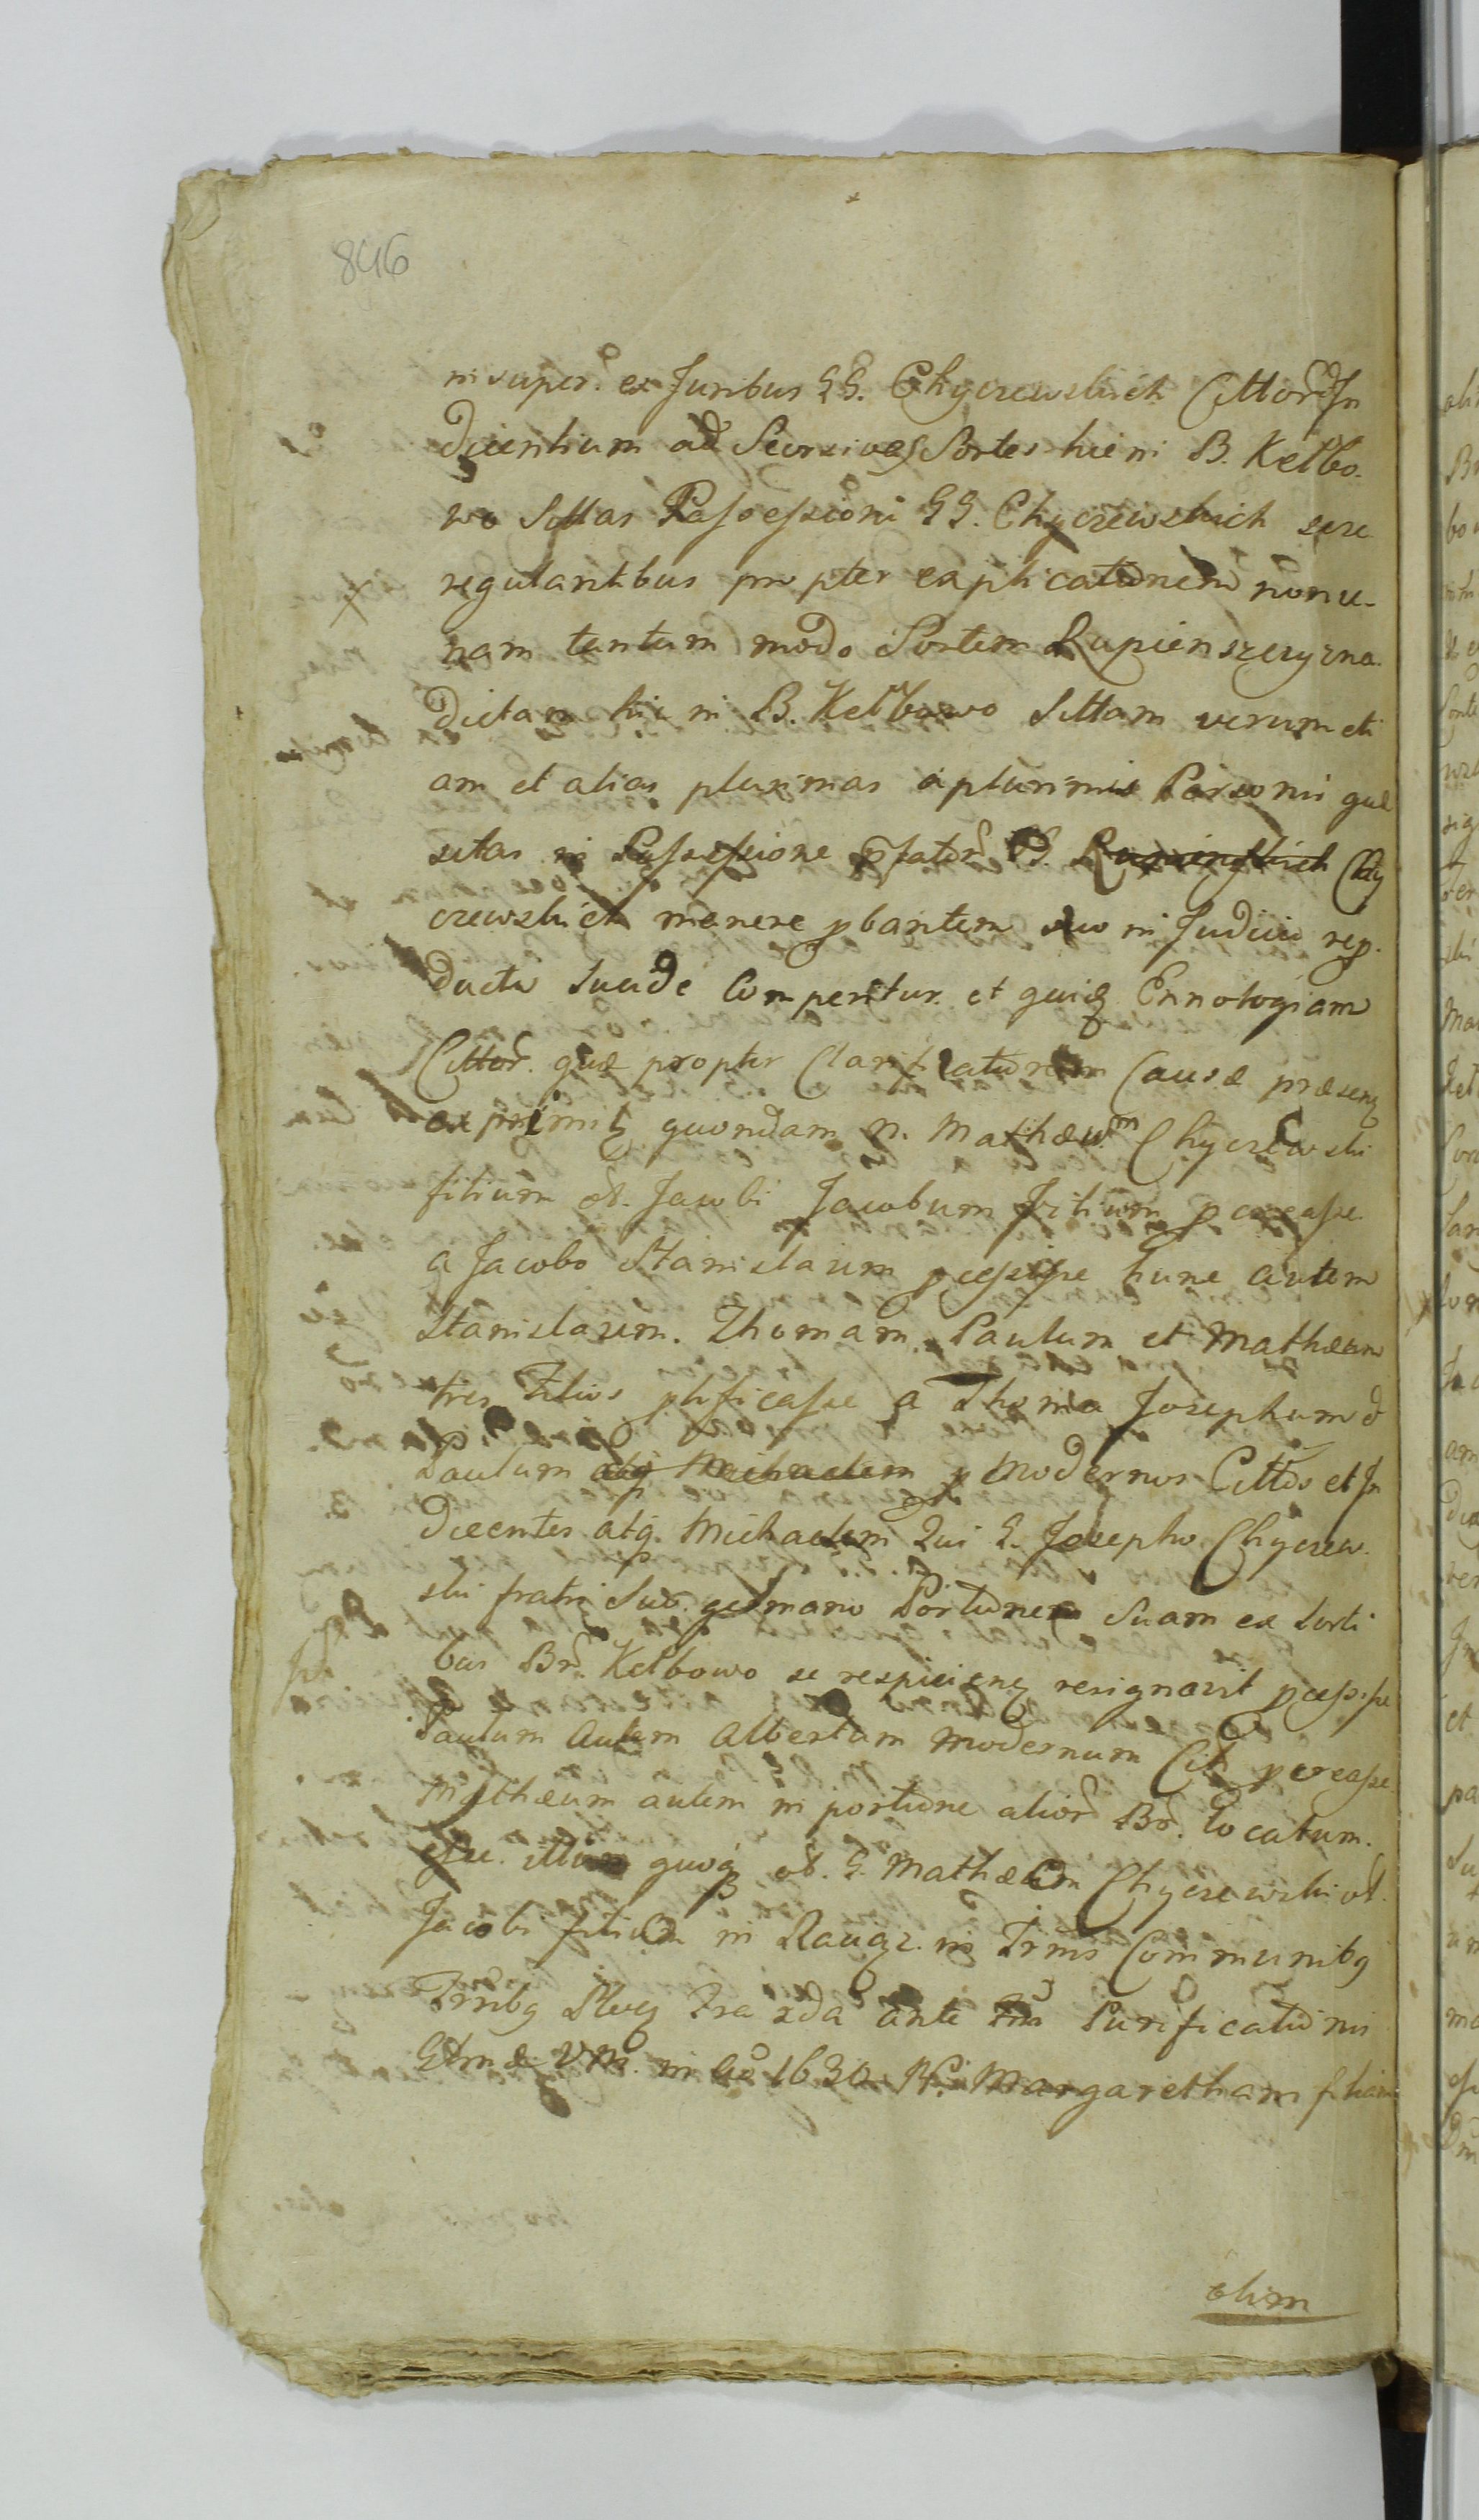 846
insuper. ex Juribus GG. Chyczewskich Cittor. In
ducentium ad Seorsivas Sortes hic in B. Kełbo-
wo Sittas Possessioni GG. Chyczewskich sese
regulantibus propter explicationem non u-
nam tantum modo Sortem Rupienszczyzna
dictam hic in B. Kełbowo Sittam verum eti
am et alias plurimas a plurimis Personis quæ
sitas in Possessione pfator. GG. Rupienskich Chy
czewskich manere pbantem suo in Judicio rep.
ducto Suade Comperitur. et quidẽ Ennologiam
Cittor. quæ propter Clarificationem Causæ præsenẽ
exprimitẽ quondam N. Mathæum Chyczewski
filium ol. Jacobi Jacobum Filium pcreasse.
a Jacobo Stanislaum pcessisse hunc autem
Stanislaum. Thomam. Paulum et Mathæum
tres Filios plificasse a Thoma Josephum &
Paulum atq Michaelem p Modernos Cittos et In
ducentes atq. Michaelem Qui G. Josepho Chyczew.
ski fratri Suo. germano Portionem Suam ex Sorti
bus Br. Kełbowo se respicienẽ resignavit pcessisse
Paulum autem Albertum modernum Cit. pcreasse
Mathæum autem in portione alior. Br. locatum.
esse. illum quoq ol. G. Mathæum Chyczewski ol.
Jacobi filium in Raciąz. in Trmis Communibq
Trmibq Fra 2da ante Fm Purificationis
Gtmæ VM. in Ao 1630. N. Margaretham filiam
olim